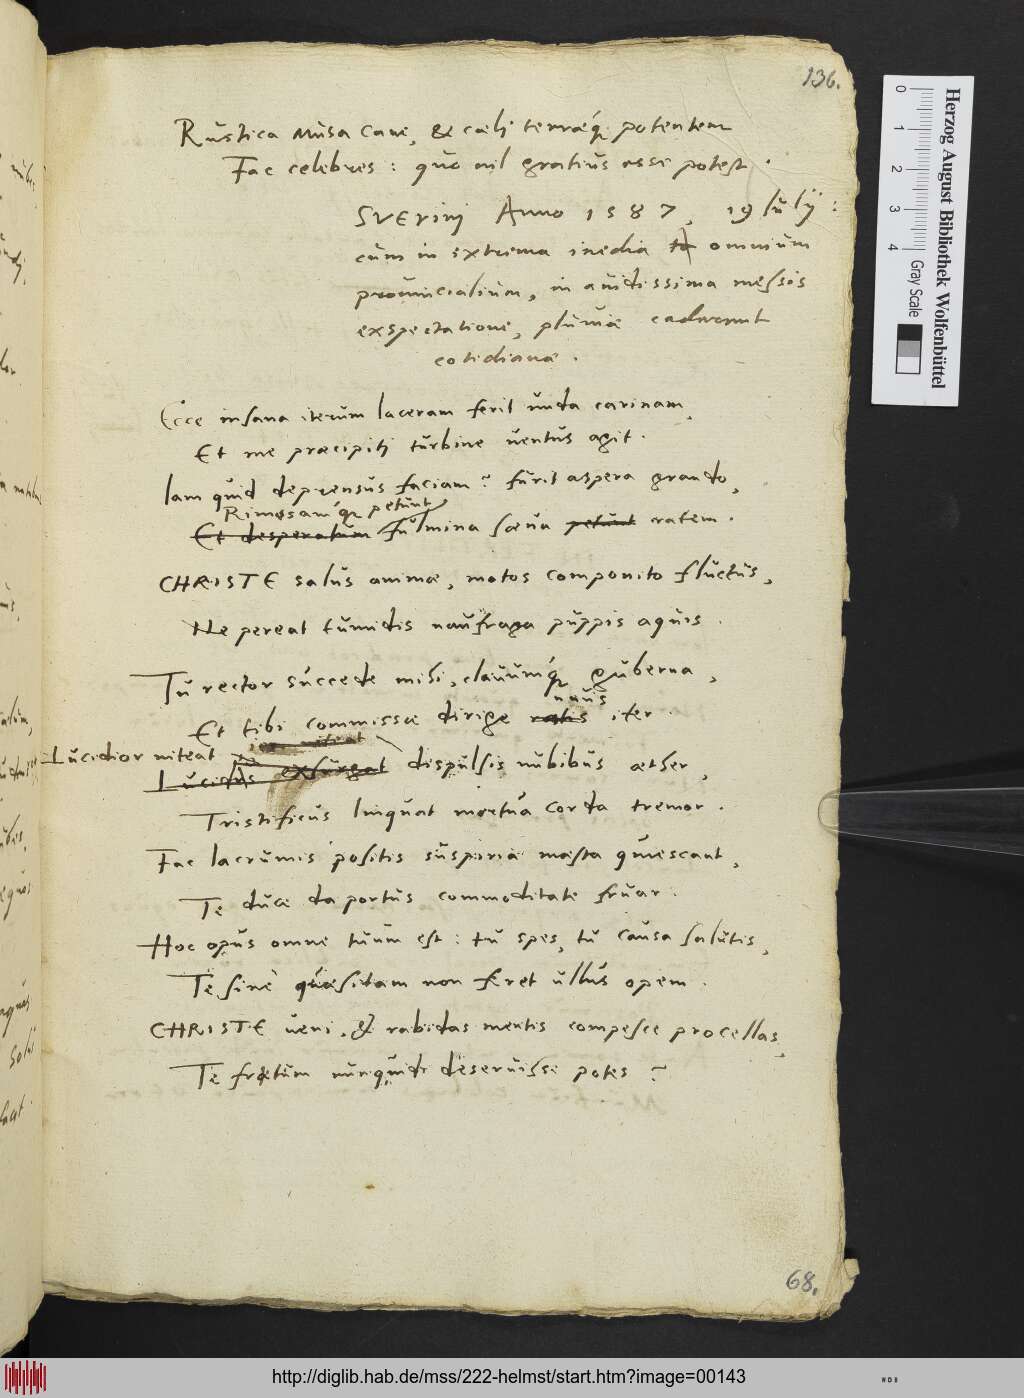 136.
Rustica Musa cane, & cæli terræq́ potentem
Fac celebres : quo nil gratius esse potest .
SVErinj Anno 1587, 19 Iulij :
cum in extrema inedia omnium
prouincialium, in auidissima messis
exspectatione, pluuiæ caderent
cotidianæ .
Ecce insana iterum laceram ferit unda carinam,
Et me præcipiti turbine uentus agit .
Iam quid deprensus faciam ? furit aspera grando,
Rimosamq́ petunt
Et desperatum fulmina sæua petunt ratem .
CHRISTE salus animæ, motos componito fluctus,
Ne pereat tumidis naufraga puppis aquis .
Tu rector succede mihi, clauumq́ guberna,
nauis
Et tibi commissæ dirige ratis iter .
Lucidior niteat
Lucidus exsurgat dispulsis nubibus æther,
Tristificus linquat mortua corda tremor .
Fac lacrumis positis suspiria mæsta quiescant,
Te duce da portus commoditate fruar .
Hoc opus omne tuum est : tu spes, tu causa salutis,
Te sine quæsitam non feret ullus opem .
CHRISTE ueni, & rabidas mentis compesce procellas,
Te fretum nunquid deseruisse potes ?
68.
Herzog August Bibliothek Wolfenbüttel
0 1 2 3 4
Gray Scale
http://diglib.hab.de/mss/222-helmst/start.htm?image=00143